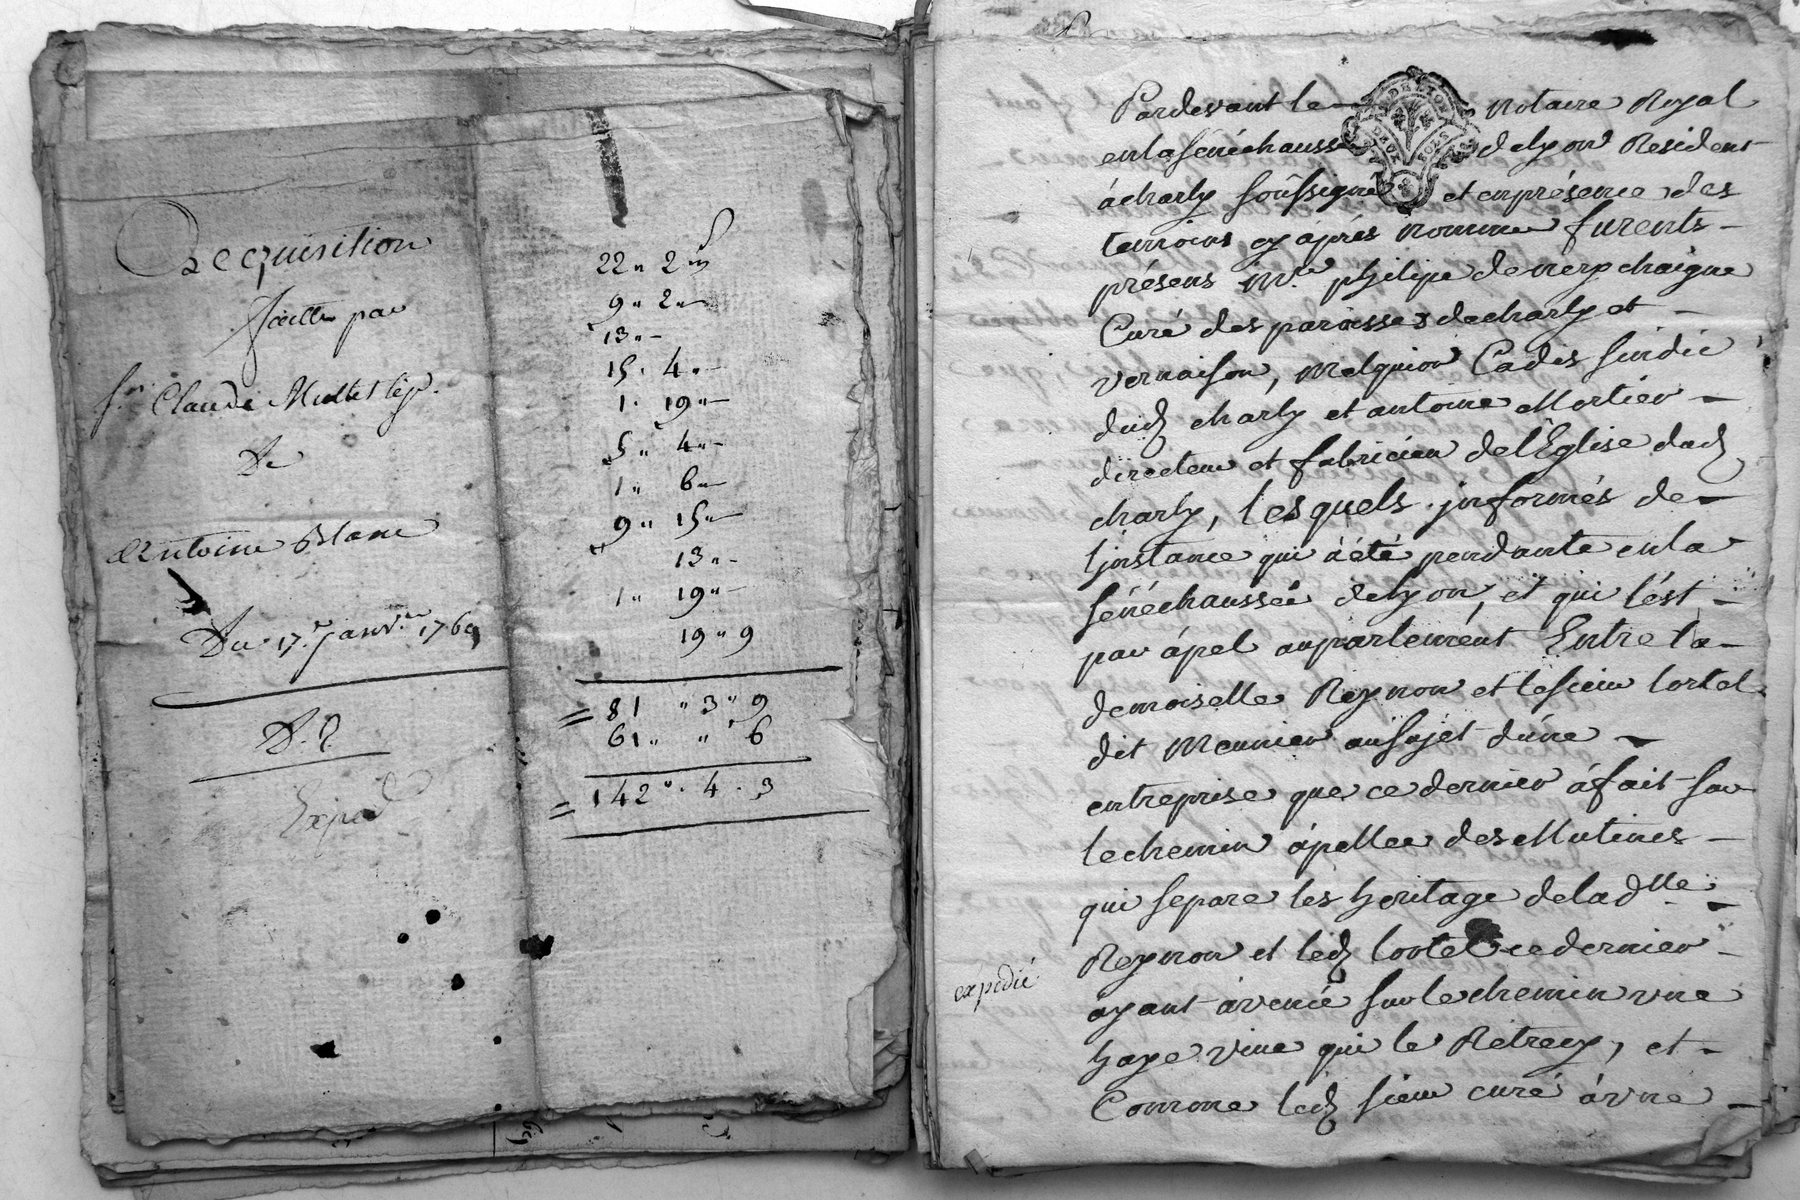 Requisition
faitte par
Sr. Claude Mullet
De
Antoine Blanc
Du 17.e janv.er 1769
D. 2.
Exped
22 " 2 "
9 " 2 "
13 "
15 " 4 "
1 " 19 "
5 " 4 "
1 " 6 "
9 " 15 "
13 "
1 " 19 "
19 " 9
= 81 " 3 " 9
61 " " 6
= 142 " 4 . 3
Pardevant le notaire Royal
en la senéchaussé de lyon Resident
à charly soussigné et en présence des
temoins cy áprés nommé furents
présens Mre philipe de nerp chaigne
Curé des paroisses de charly et
vernaison, melquion Cadis sindic
dud charly et antoine Mortier
directeur et fabricien de l'Eglise dud
charly, lesquels jnformés de
l'jnstance qui à été pendante en la
sénéchaussée de lyon, et qui lést
par ápel au parlement Entre la
demoiselle Reynon et le sieur lortet
dit Meunier au sujet dúne
entreprise que ce dernier á fait sur
le chemin ápellée des Mutines
qui separe les heritage de lad lle
Reynon et led lortet ce dernier
ayant avencé sur le chemin vne
haye vive qui le Rétrecy, et
Comme led sieur curé á vne
expedié
DE LYON
DEUX SOLS